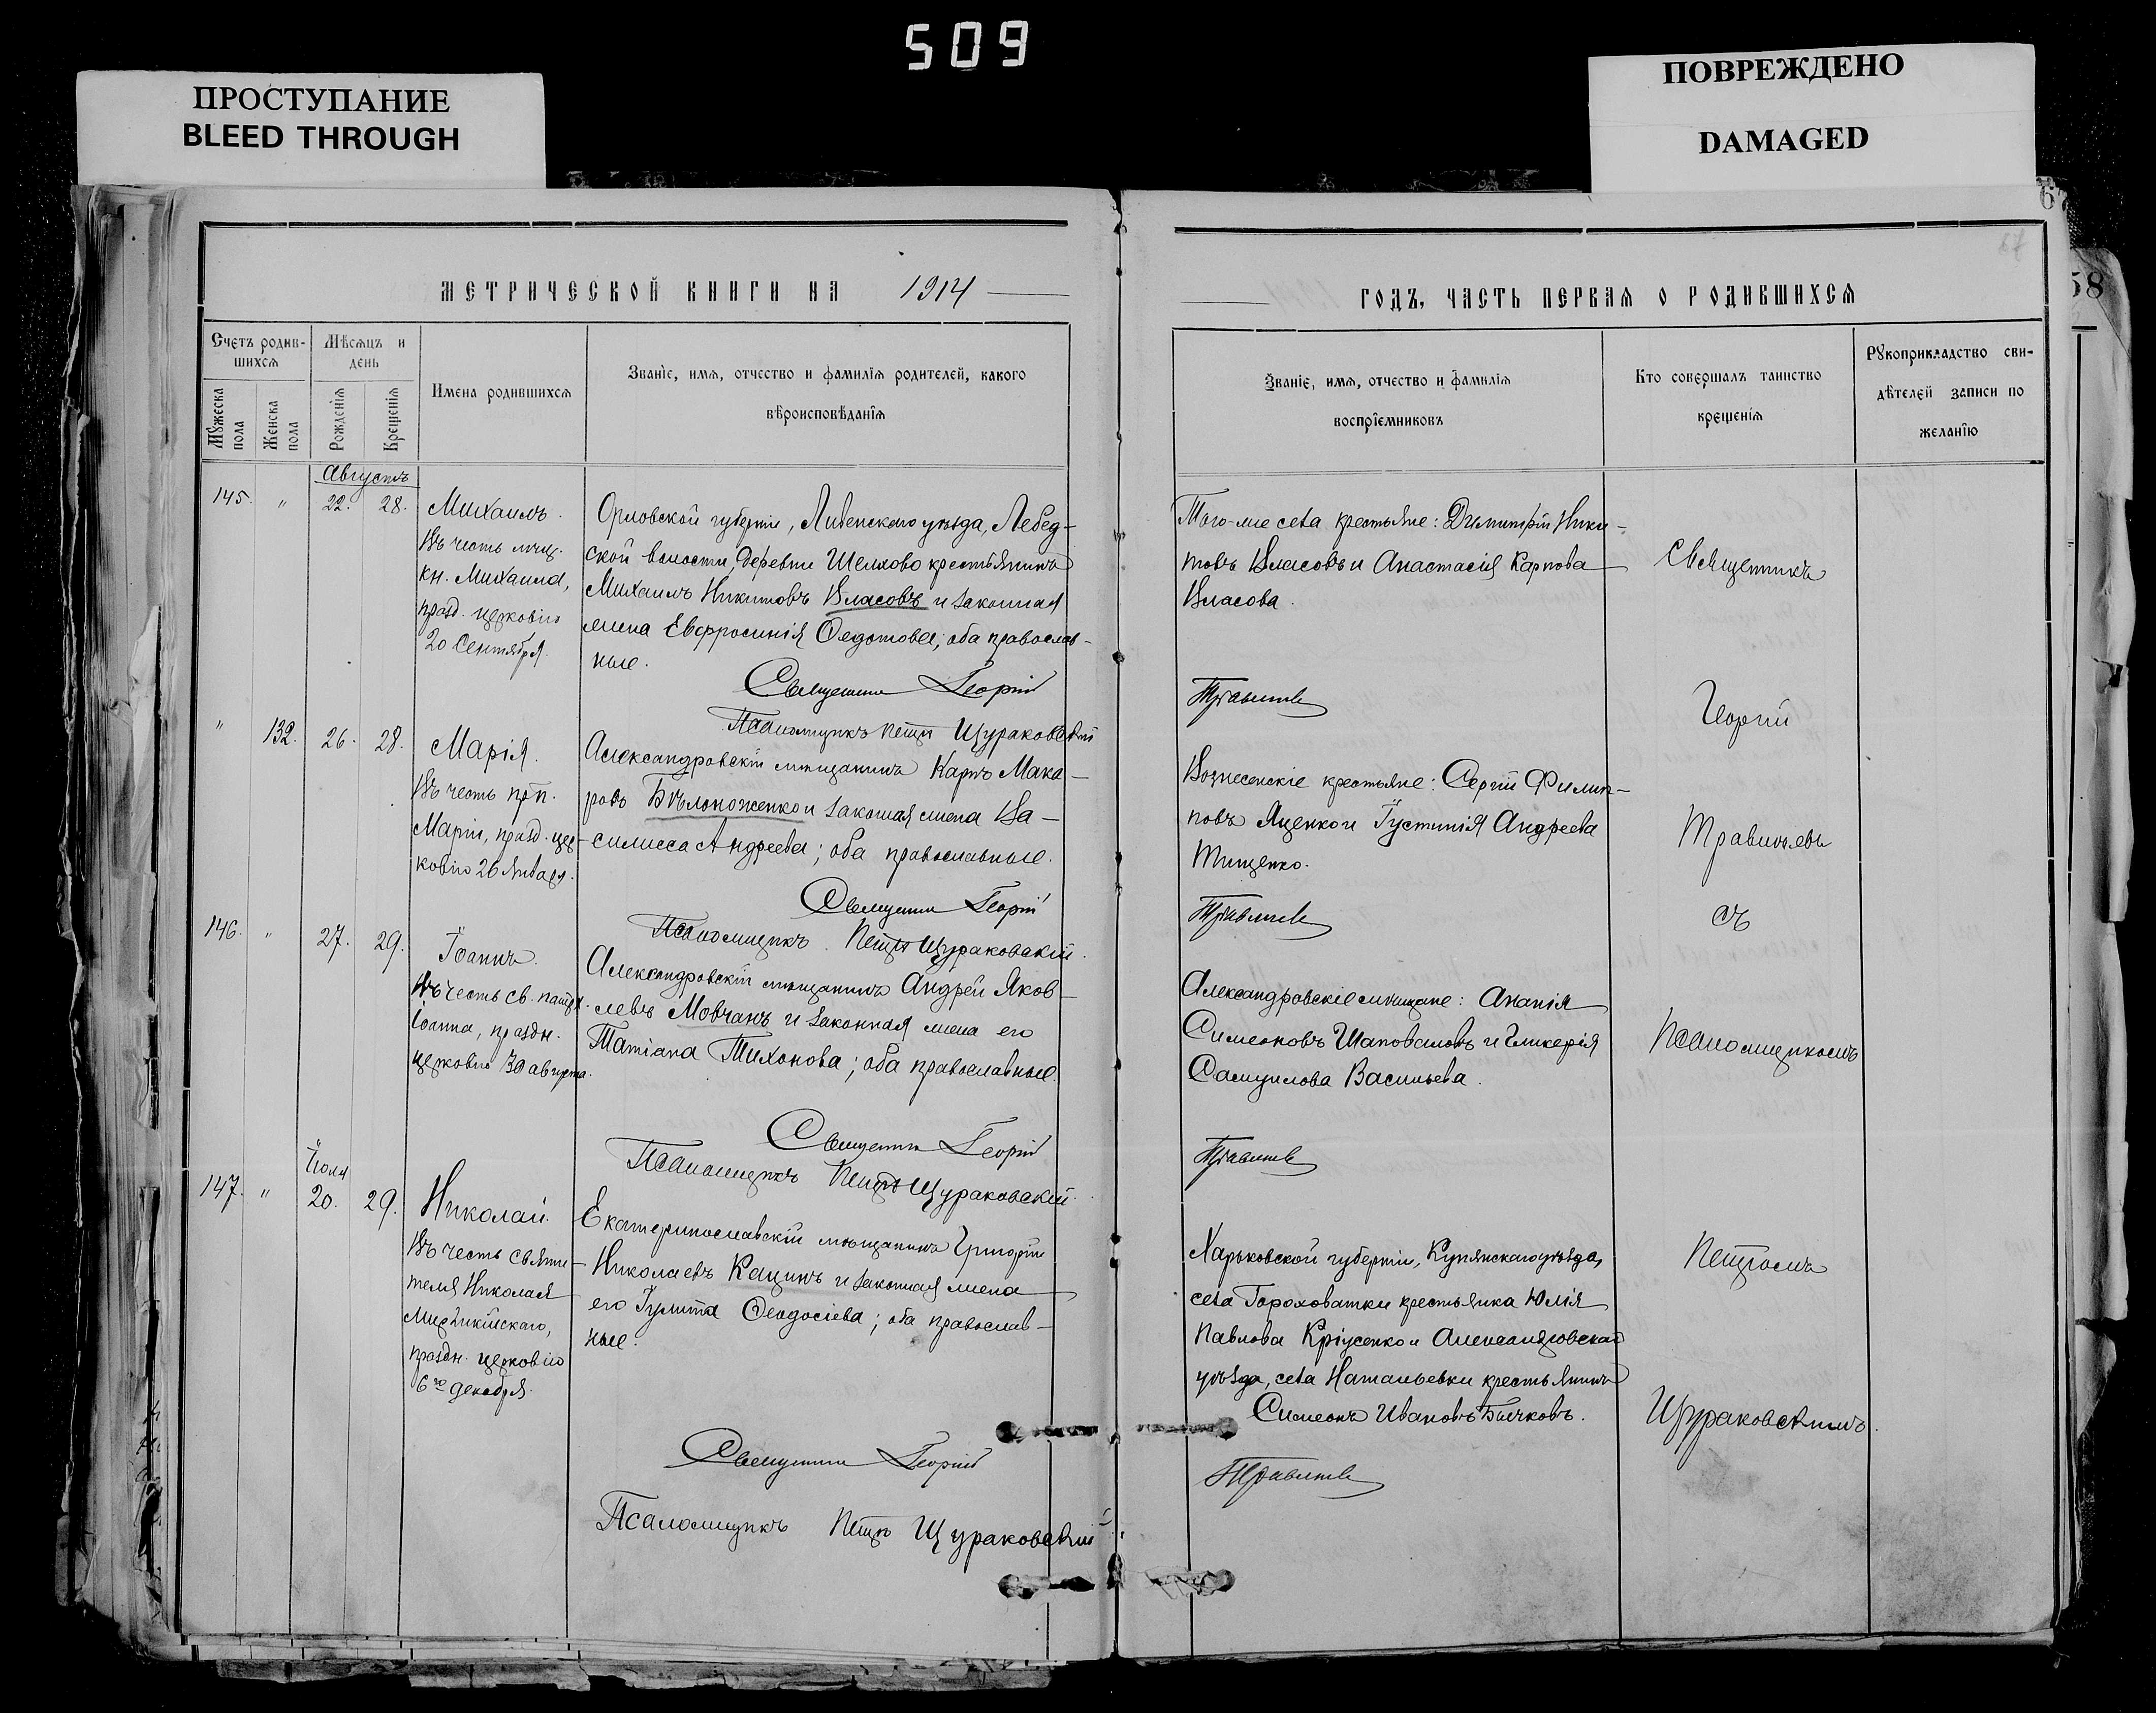 509
ПРОСТУПАНИЕ
BLEED THROUGH
ПОВРЕЖДЕНО
DAMAGED
58
МЕТРИЧЕСКОЙ КНИГИ НА 1914
Счетъ родив-
шихся
Мужеска пола
Женска пола
Мѣсяцъ и
день
Рожденія
Крещенія
Имена родившихся
Званіе, имя, отчество и фамилія родителей, какого
вѣроисповѣданія
Августъ
145. " 22. 28.
Михаилъ.
Въ честь
кн. Михаила,
празд. церковію
20 Сентября.
Орловской губерніи, Ливенскаго уѣзда, Лебед-
ской волости, деревни Шелхово крестьянинъ
Михаилъ Никитовъ Власовъ и законная
жена Евфросинія Ѳедотова; оба православ-
ные.
Священникъ Георгій
Псаломщикъ Петръ Щураковскій
" 132. 26. 28.
Марія.
Въ честь прп.
Маріи, празд. цер-
ковію 26 Января.
Александровскій мѣщанинъ Карпъ Мака-
ровъ Бѣлоноженко и законная жена Ва-
силисса Андреева; оба православные.
Священникъ Георгій
Псаломщикъ. Петръ Щураковскій.
146. " 27. 29.
Іоаннъ.
Въ честь св. патр.
Іоанна, праздн.
церковію 30 августа.
Александровскій мѣщанинъ Андрей Яков-
левъ Мовчанъ и законная жена его
Татіана Тихонова; оба православные.
Священникъ Георгій
Псаломщикъ Петръ Щураковскій.
Іюля
147. " 20. 29.
Николай.
Въ честь святи-
теля Николая
Мирликійскаго,
праздн. церковію
6го декабря.
Екатеринославскій мѣщанинъ Григорій
Николаевъ Кацинъ и законная жена
его Іулитта Ѳеодосіева; оба православ-
ные.
Священникъ Георгій
Псаломщикъ Петръ Щураковскій
ГОДЪ, ЧАСТЬ ПЕРВАЯ О РОДИВШИХСЯ
67
Званіе, имя, отчество и фамилія
воспріемниковъ
Кто совершалъ таинство
крещенія
Рукоприкладство сви-
дѣтелей записи по
желанію
Того-же села крестьяне: Димитрій Ники-
товъ Власовъ и Анастасія Карпова
Власова.
Травичевъ
Вознесенскіе крестьяне: Сергій Филип-
повъ Яценко и Іустинія Андреева
Тищенко.
Травичевъ
Александровскіе мѣщане: Ананія
Симеоновъ Шаповаловъ и Гликерія
Самуилова Васильева.
Травичевъ
Харьковской губерніи, Купянскаго уѣзда,
села Гороховатки крестьянка Юлія
Павлова и Александровскаго
уѣзда, села Натальевки крестьянинъ
Симеонъ Ивановъ Бычковъ.
Травичевъ
Священникъ
Георгій
Травичевъ
съ
Псаломщикомъ
Петромъ
Щураковскимъ.